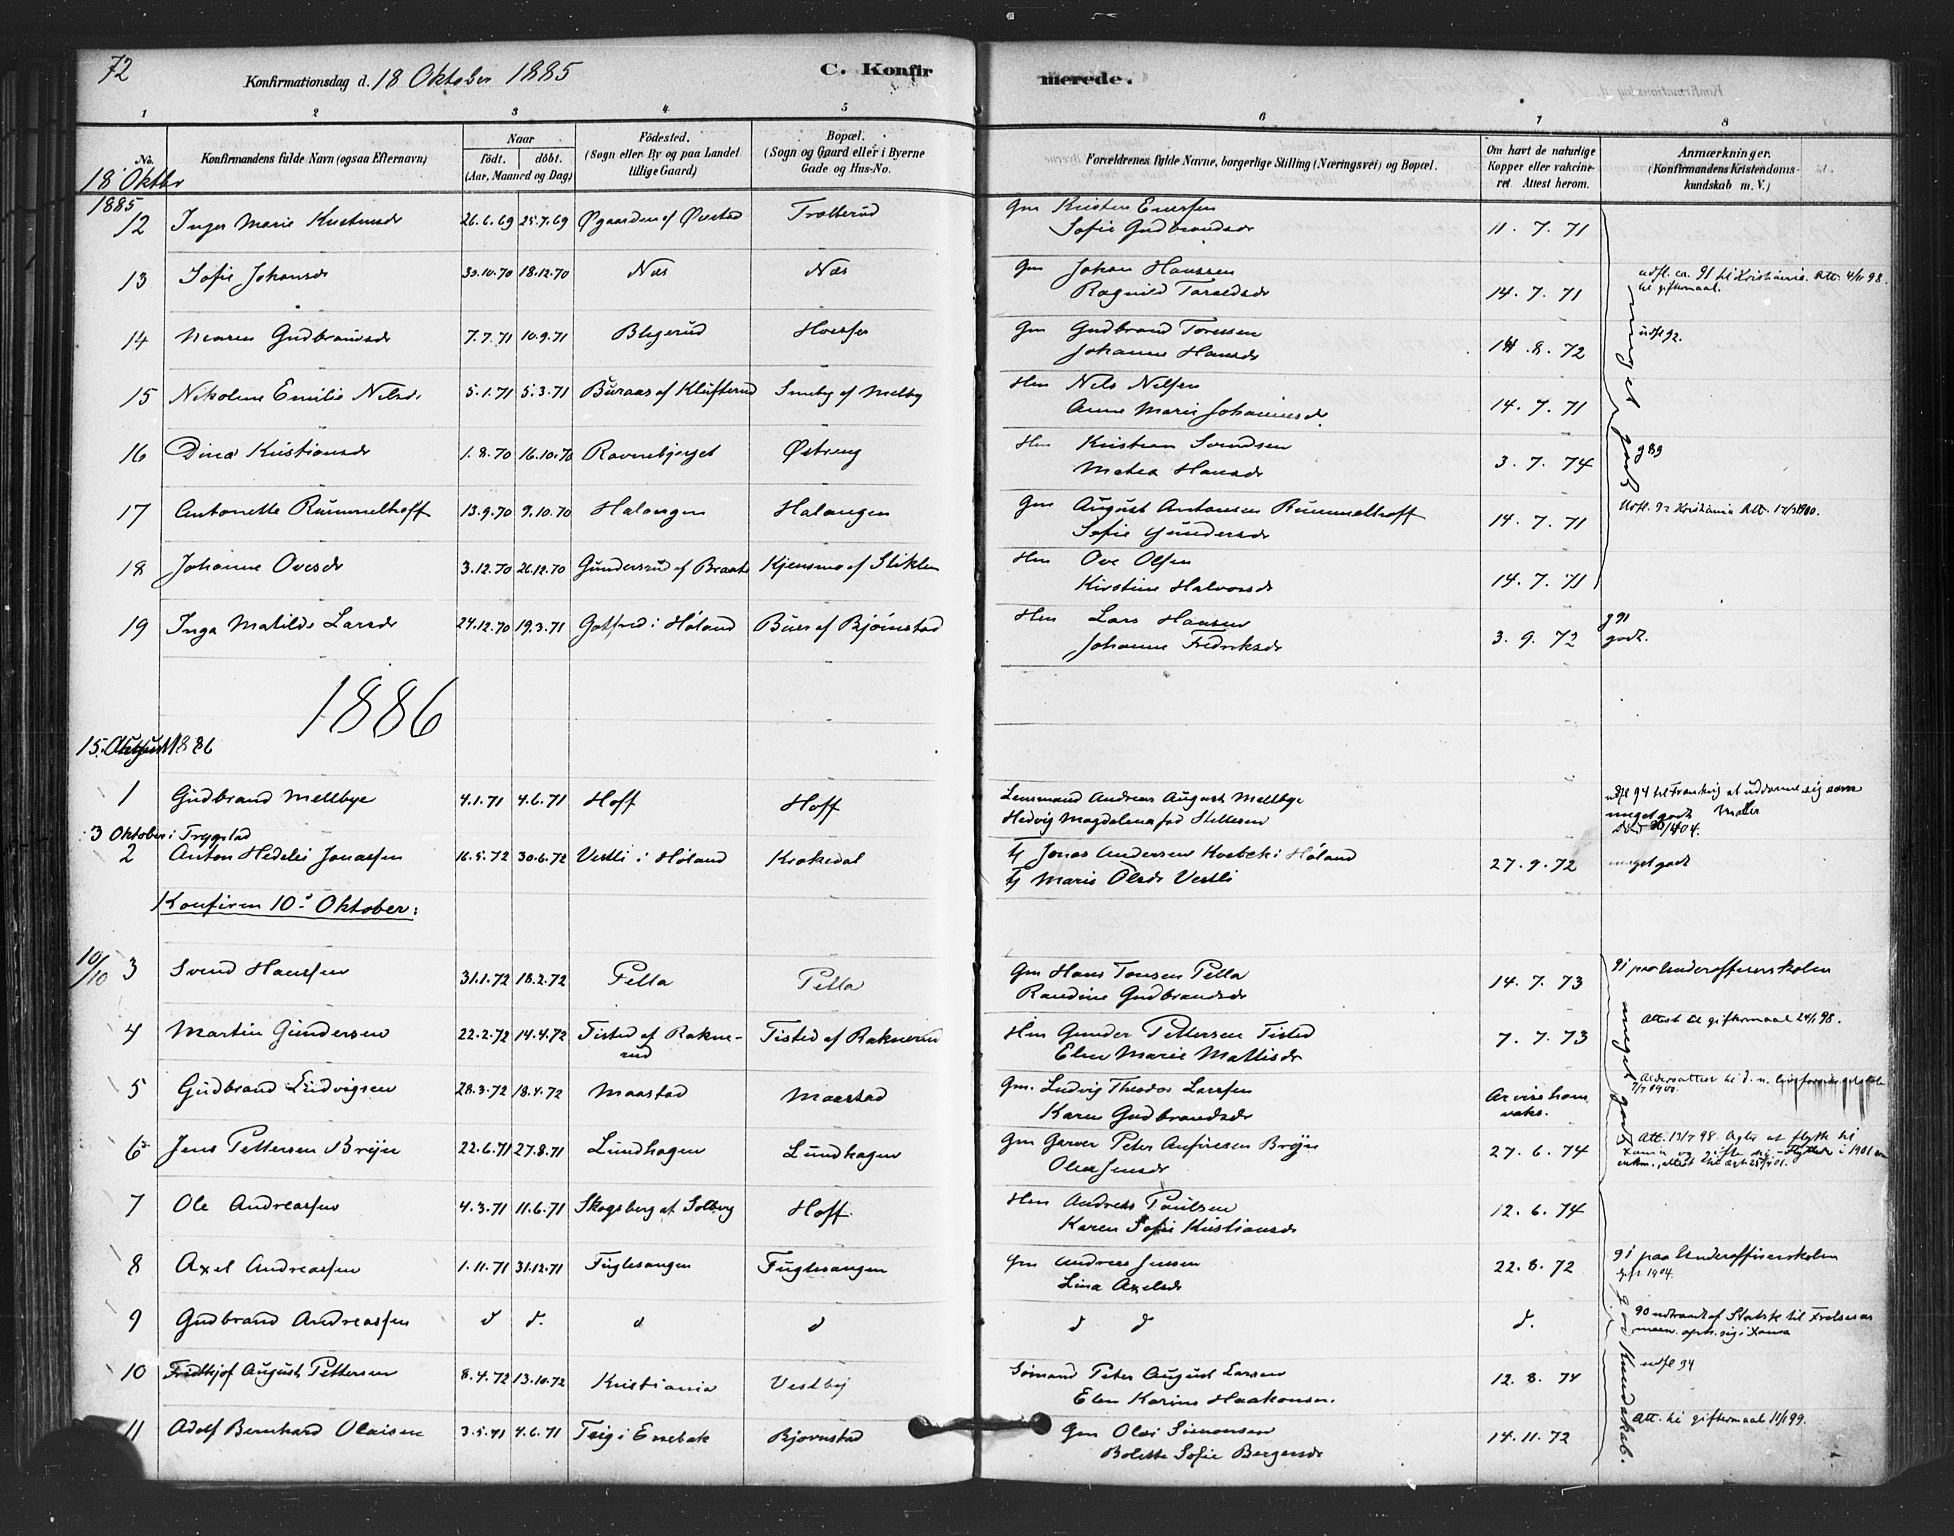 72
Konfirmationsdag d. 18 Oktober 1885
C. Konfir
merede.
1 2 3 4 5 6 7 8
No. Konfirmandens fulde Navn (ogsaa Efternavn)
Naar
født. døbt.
(Aar, Maaned og Dag)
Fødested.
(Sogn eller By og paa Landet
tillige Gaard)
Bopæl.
(Sogn og Gaard eller i Byerne
Gade og Hus-No.
Forældrenes fulde Navne, borgerlige Stilling (Næringsvei) og Bopæl.
Om havt de naturlige
Kopper eller vakcine-
ret. Attest herom.
Anmærkninger.
(Konfirmandens Kristendoms-
kundskab m. V.)
18 Oktbr
1885
12 Inger Marie Kristensdr 26.6.69 25.7.69 Øgaarden af Øvestad Trolterud Gm Kristen Enersen
Sofie Gudbrandsdr 11. 7. 71
13 Sofie Johansdr 30.10.70 18.12.70 Næs Næs Gm Johan Hanssen
Ragnild Taraldsdr 14. 7. 71 udfl. ca. 91 til Kristiania. Att. 4/11 98
til giftermaal.
14 Maren Gudbrandsdr 7.7.71 10.9.71 Blegerud Gm Gudbrand Toressen
Johanne Hansdr 14. 8. 72 udfl 92.
15 Nikoline Emilie Nilsdr 5.1.71 5.3.71 Buraas af Klufterud Inneby af Melby Hm Nels Nelsen
Anne Marie Johannesdr. 14. 7. 71
meget godt
16 Dina Kristiansdr 1.8.70 16.10.70 Ravnebjerget Østreng Hm Kristian Svendsen
Matea Hansdr 3. 7. 74 g 89
17 Antonette Rümmelhoff 13.9.70 9.10.70 Halangen Halangen Gm August Antonsen Rümmelhoff
Sofie Gundersdr 14. 7. 71 Udfl. 92 Kristiania Att. 17/3 1900.
18 Johanne Ovesdr 3.12.70 26.12.70 Gundersrud af Braate Kjensmo af Stiklen Hm Ove Olsen
Kirstine Halvorsdr 14. 7. 71
19 Inga Matilde Larsdr 24.12.70 19.3.71 Gotfred i Høland Buer af Bjørnstad Hm Lars Hansen
Johanne Fredriksdr 3. 9. 72 g 91
godt.
1886
15. August 1886
1 Gudbrand Mellbye 4.1.71 4.6.71 Hoff Hoff Lensmand Andreas August Mellbye
Hedvig Magdalena fød Stillesen udfl 94 til Frankrig at uddanne sig som
meget godt Maler
1404.
3 Oktober i Trygstad
2 Anton Hedelei Jonassen 16.5.72 30.6.72 Vestli i Høland Krokedal Tj Jonas Andersen Kvebek i Høland
Tj Marie Olsdr Vestli 27. 9. 72 meget godt
Konfirm 10. Oktober:
10/10 3 Svend Hanssen 31.1.72 18.2.72 Pella Pella Gm Hans Tonsen Pella
Randine Gudbrandsdr 14. 7. 73 91 paa Underofficersskolen
4 Martin Gundersen 22.2.72 14.4.72 Tisted af Rakne-
rud Tisted af Raknerud Hm Gunder Pettersen Tisted
Elen Marie Mattisdr 7. 7. 73 Attest til giftermaal 24/1 98.
5 Gudbrand Ludvigsen 28.3.72 18.4.72 Maastad Maastad Gm. Ludvig Theodor Larssen
Karen Gudbrandsdr Ar vise ham
vaks. Aldersattest til d. n.
7/7 1900.
meget godt
6 Jens Pettersen Brejne 22.6.71 27.8.71 Lundhagen Lundhagen Gm Garver Peter Anfinesen Brejne
Olea Jensdr 27. 6. 74 Att. 13/7 98. Agter at flytte til
Xania og gifte sig - flyttede i 1901
7 Ole Andreassen 4.3.71 11.6.71 Skogsberg af Solberg Hoff Hm Andreas Paulsen
Karen Sofie Kristiansdr 12. 6. 74
8 Axel Andreassen 1.11.71 31.12.71 Fuglesangen Fuglesangen Gm Andreas Jensen
Lina Axelsdr 22. 8. 72 91 paa Underofficersskolen
gift 1904.
9 Gudbrand Andreassen d d. d d d d d. 90 udtraadt af Statsk. til Frelsesar
meen. oph. sig i Xania
God Kundskab.
10 Fridthjof August Pettersen 8.4.72 13.10.72 Kristiania Vestby Sømand Peter August Larsen
Elen Karine Haakonsen. 12. 8. 74 udfl 94
11 Adolf Bernhard Olaisen 3.5.71 4.6.71 Teig i Enebak Bjørnstad Gm Olai Simonsen
Bolette Sofie Bergersdr 14. 11. 72 Att. til giftermaal 11/1 99.